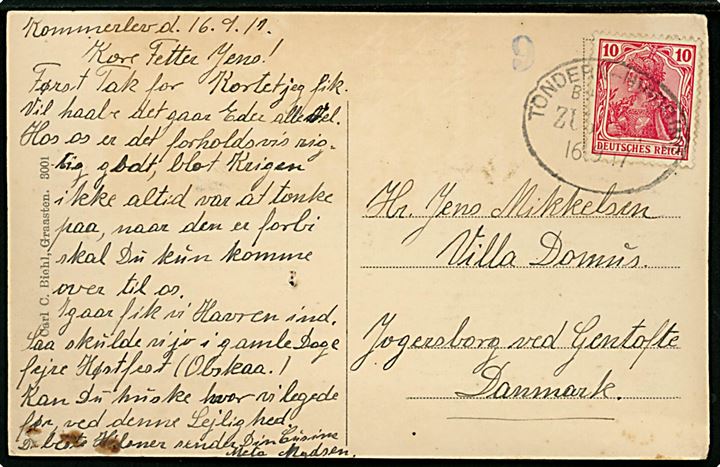 Kommerlev d. 16.9.17.
Kære Fetter Jens!
Først Tak for Kortet jeg fik.
Vil haabe det gaar Eder alle vel.
Hos os er det forholdsvis rig-
tig godt, blot Krigen
ikke altid var at tænke
paa, naar den er forbi
skal Du kun komme
over til os.
Igaar fik vi Havren ind.
Saa skulde vi jo i gamle Dage
fejre Høstfest (Obskaa!)
Kan Du huske hvor vi legede
før, ved denne Lejlighed.
De beste Hilsner sender Din Cusine
Meta Madsen.
Carl C. Biehl, Graasten. 3001
9
10 10
DEUTSCHES REICH
TONDERN
ZUG
16.9.17
Hr. Jens Mikkelsen
Villa Domus.
Jogersborg ved Gentofte
Danmark.